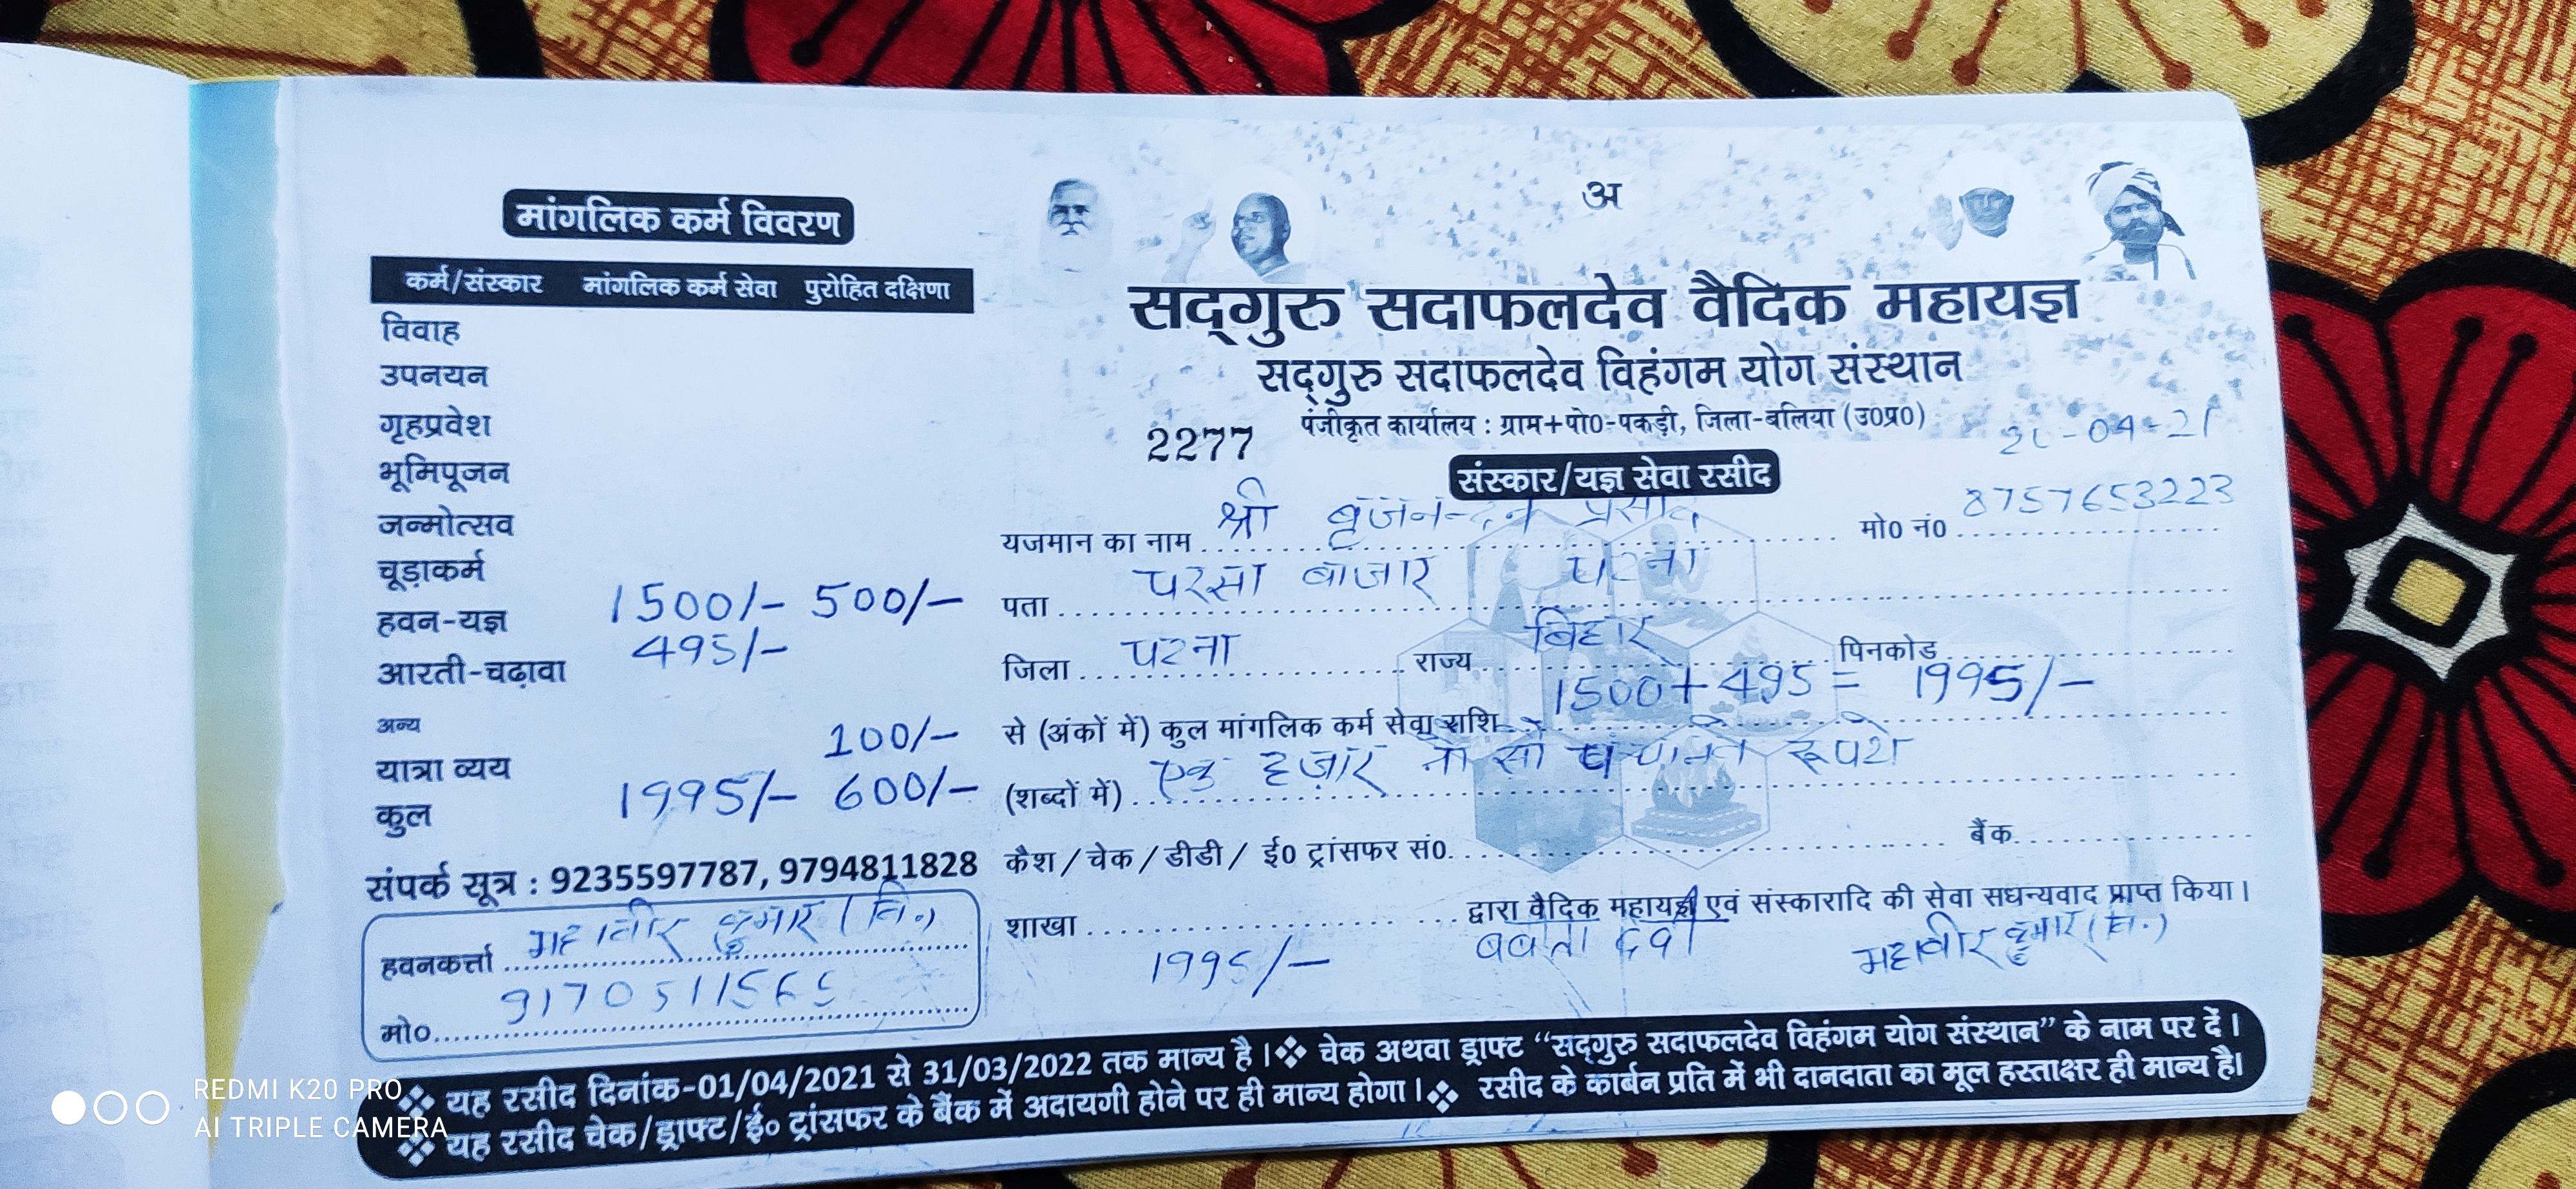 मांगलिक कर्म विवरण
कर्म/संस्कार मांगलिक कर्म सेवा पुरोहित दक्षिणा
विवाह
उपनयन
गृहप्रवेश
भूमिपूजन
जन्मोत्सव
चूड़ाकर्म
हवन-यज्ञ 1500/- 500/-
आरती-चढ़ावा 495/-
अन्य
यात्रा व्यय 100/-
कुल 1995/- 600/-
संपर्क सूत्र : 9235597787, 9794811828
हवनकर्त्ता महावीर कुमार (वि.)
मो०
अ
सद्गुरु सदाफलदेव वैदिक महायज्ञ
सद्गुरु सदाफलदेव विहंगम योग संस्थान
पंजीकृत कार्यालय : ग्राम+पो0-पकड़ी, जिला-बलिया (उ0प्र0)
2277
संस्कार/यज्ञ सेवा रसीद
यजमान का नाम श्री बृजनन्दन प्रसाद मो0 नं0 8757653223
पता परसा बाजार पटना
जिला पटना राज्य बिहार पिनकोड
से (अंकों में) कुल मांगलिक कर्म सेवा राशि 1500+495 = 1995/-
(शब्दों में) एक हज़ार नौ सौ पंचानवे रूपये
कैश/चेक/डीडी/ ई0 ट्रांसफर सं0 बैंक
शाखा द्वारा वैदिक महायज्ञ एवं संस्कारादि की सेवा सधन्यवाद प्राप्त किया।
1995/- बबीता देवी महावीर कुमार (वि.)
❖ यह रसीद दिनांक-01/04/2021 से 31/03/2022 तक मान्य है।❖ चेक अथवा ड्राफ्ट “सद्गुरु सदाफलदेव विहंगम योग संस्थान” के नाम पर दें।
❖ यह रसीद चेक/ड्राफ्ट/ई० ट्रांसफर के बैंक में अदायगी होने पर ही मान्य होगा।❖ रसीद के कार्बन प्रति में भी दानदाता का मूल हस्ताक्षर ही मान्य है।
REDMI K20 PRO
AI TRIPLE CAMERA